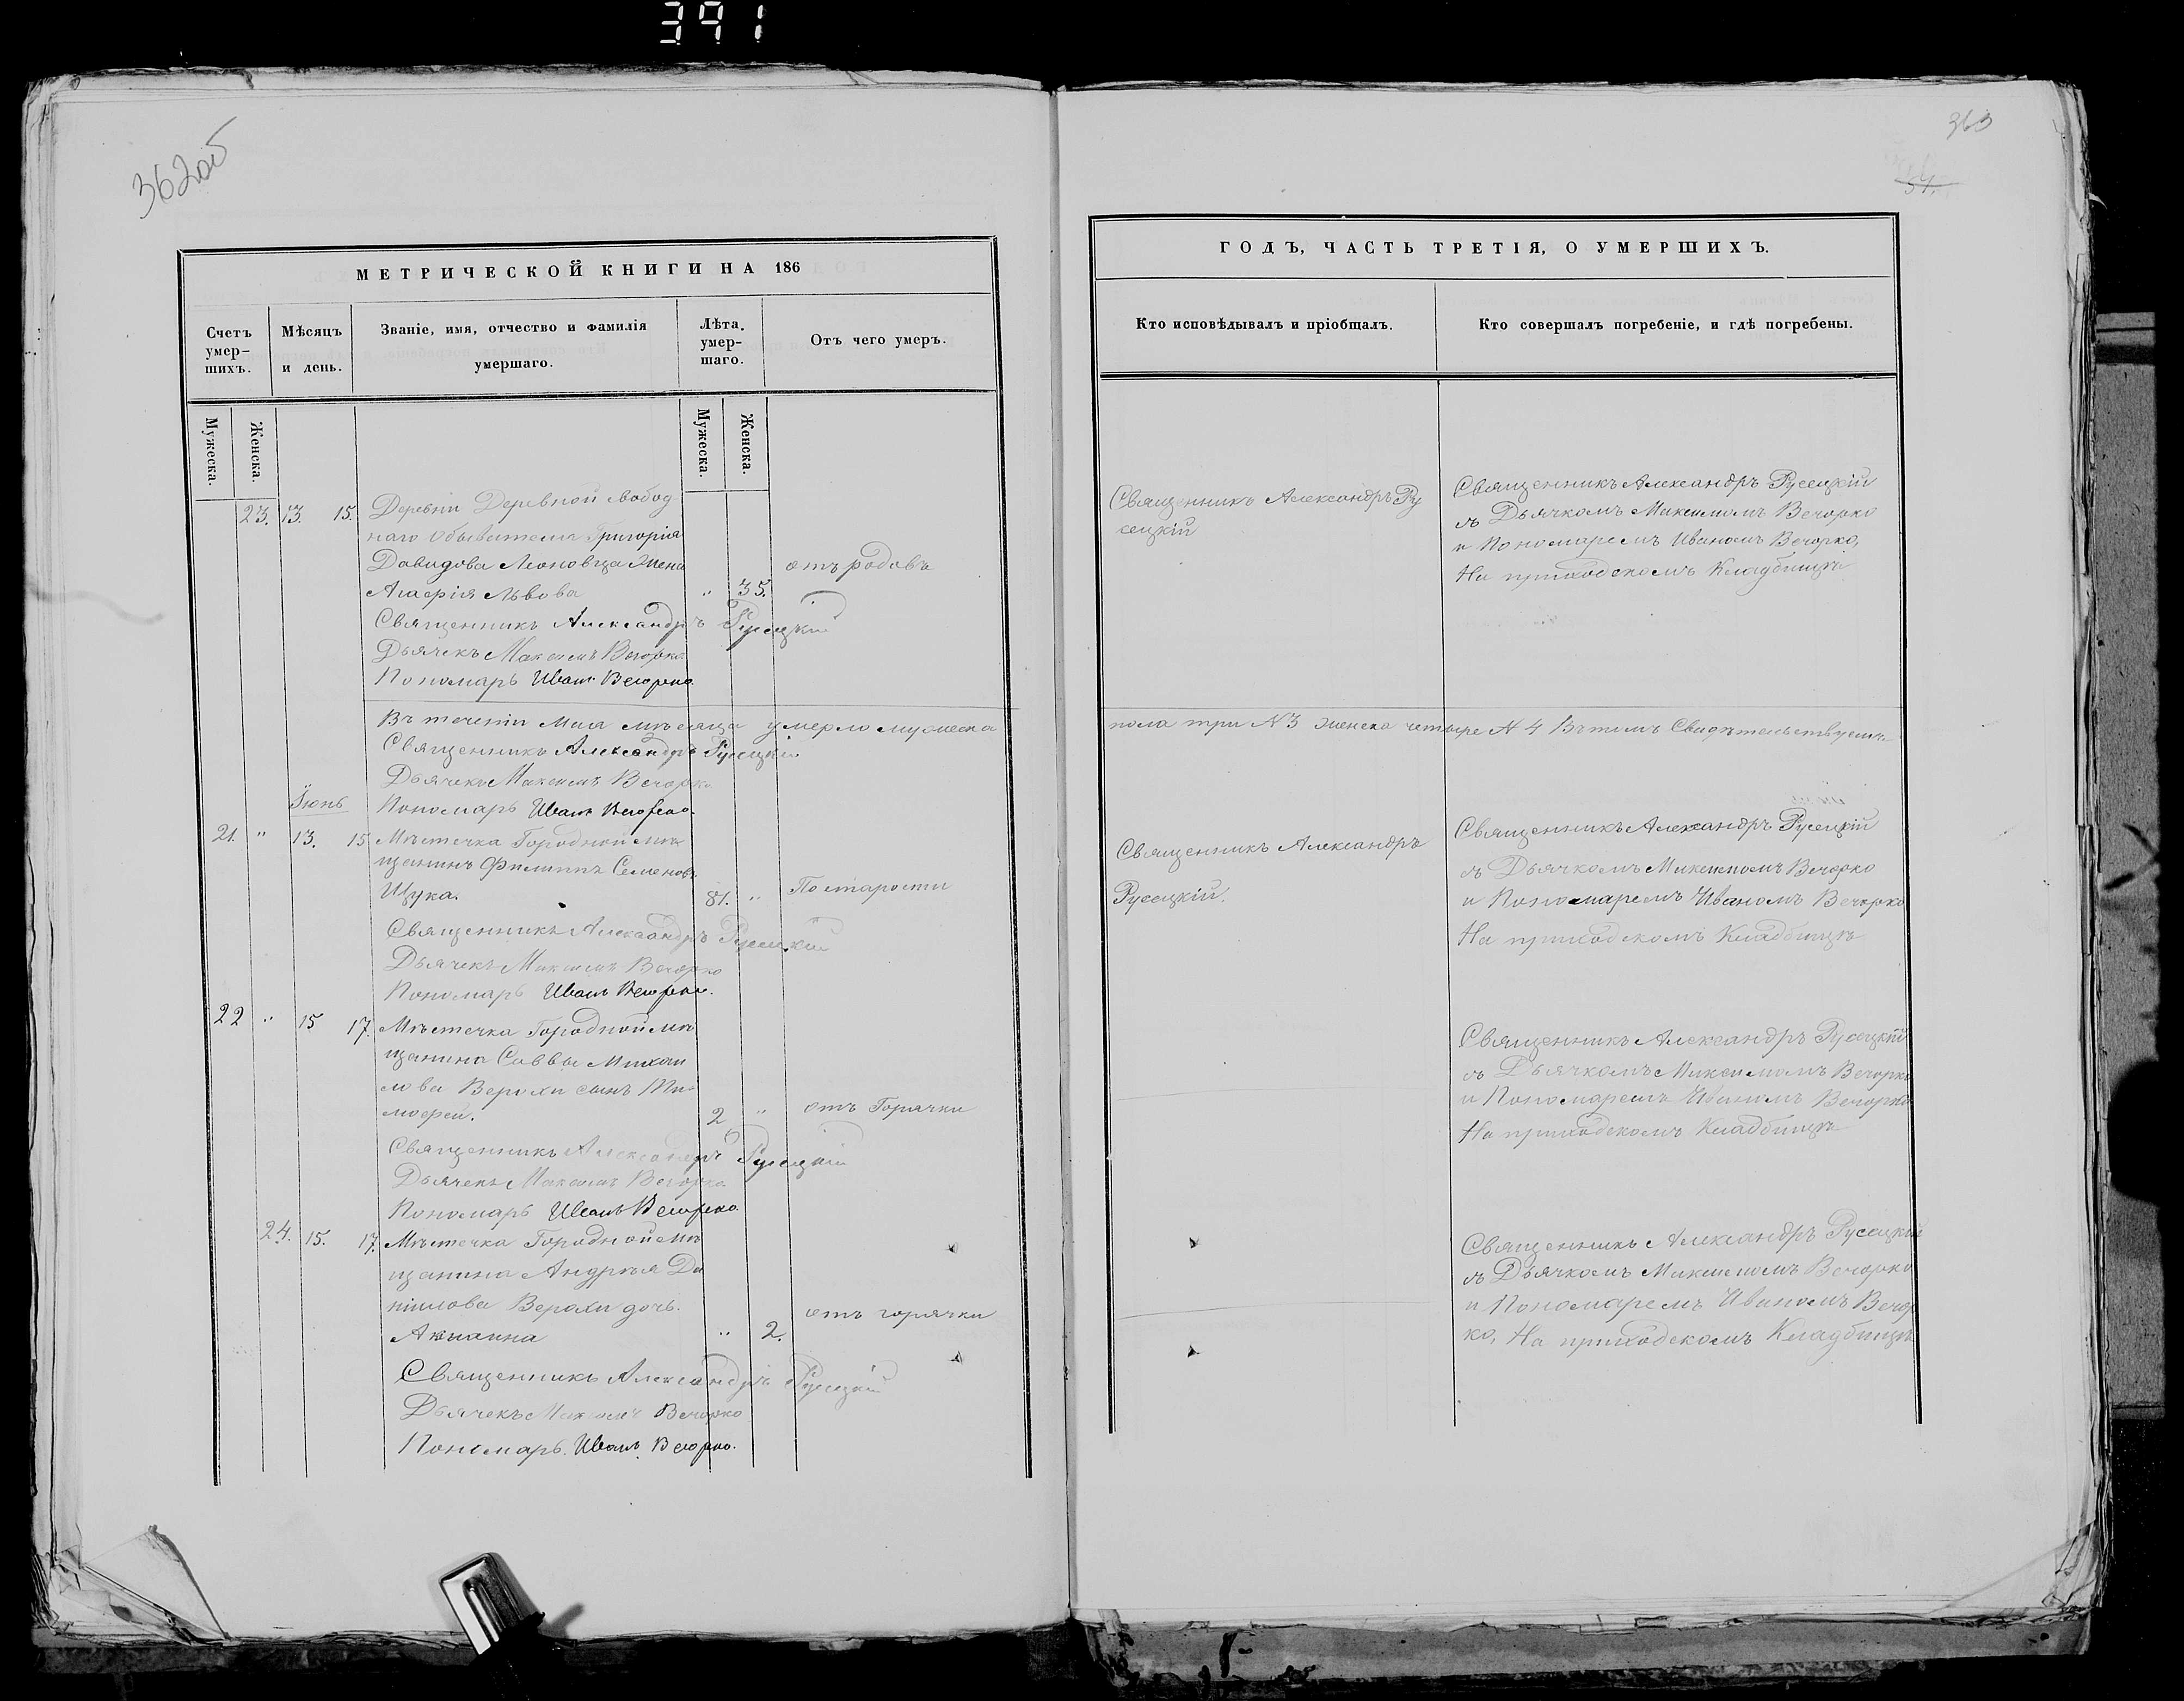 391
362об
МЕТРИЧЕСКОЙ КНИГИ НА 186
Счетъ умер-шихъ.
Мѣсяцъ и день.
Званіе, имя, отчество и фамилія умершаго.
Лѣта. умер-шаго.
Отъ чего умеръ.
Мужеска.
Женска.
Мужеска.
Женска.
23. 13. 15. Деревни Деревной свобод
наго обывателя Григорія
Давидова Леоновца жена
Агафія Львова " 35. отъ родовъ
Священникъ Александръ Русецкій
Дьячекъ Максимъ Вечорко
Пономарь Иванъ Вечорко.
Въ теченіи Мая мѣсяца умерло мужеска
Священникъ Александръ Русецкій
Дьячекъ Максимъ Вечорко
Пономарь Иванъ Вечорко.
Іюнь
21. " 13. 15 Мѣстечка Городной мѣ
щанинъ Филиппъ Семеновъ
Щука. 81. " По старости
Священникъ Александръ Русецкій
Дьячекъ Максимъ Вечорко
Пономарь Иванъ Вечорко.
22 " 15 17. Мѣстечка Городной мѣ
щанина Саввы Михаи
лова Верохи сынъ Ти
мофей. 2 " отъ Горячки
Священникъ Александръ Русецкій
Дьячекъ Максимъ Вечорко
Пономарь Иванъ Вечорко
24. 15. 17. Мѣстечка Городной мѣ
щанина Андрея Да
ніилова Верохи дочь.
Акилина " 2. отъ горячки
Священникъ Александръ Русецкій
Дьячекъ Максимъ Вечорко
Пономарь Иванъ Вечорко.
363
51.
ГОДЪ, ЧАСТЬ ТРЕТІЯ, О УМЕРШИХЪ.
Кто исповѣдывалъ и пріобщалъ.
Кто совершалъ погребеніе, и гдѣ погребены.
Священникъ Александръ Ру
сецкій
Священникъ Александръ Русецкій
съ Дьячкомъ Максимомъ Вечорко
и Пономаремъ Иваномъ Вечорко,
На приходскомъ Кладбищѣ
пола три N 3 женска четыре N 4 Въ томъ Свидѣтельствуемъ
Священникъ Александръ
Русецкій.
Священникъ Александръ Русецкій
съ Дьячкомъ Максимомъ Вечорко
и Пономаремъ Иваномъ Вечорко
На приходскомъ Кладбищѣ
Священникъ Александръ Русецкій
съ Дьячкомъ Максимомъ Вечорко
и Пономаремъ Иваномъ Вечорко
На приходскомъ Кладбищѣ
Священникъ Александръ Русецкій
съ Дьячкомъ Максимомъ Вечорко
и Пономаремъ Иваномъ Вечор
ко, На приходскомъ Кладбищѣ